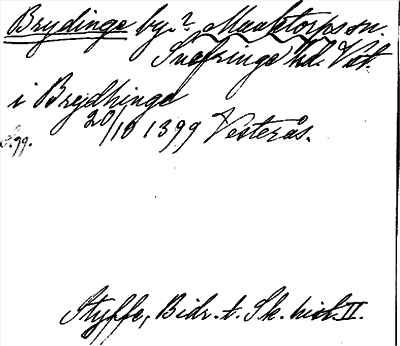 Brydinge by? Maaktorps sn.
Snefringe hd. Vstm.
i Brydhinge
20/10 1399 Vesterås.
S. 99.
Styffe, Bidr. t. Sk. hist. II.